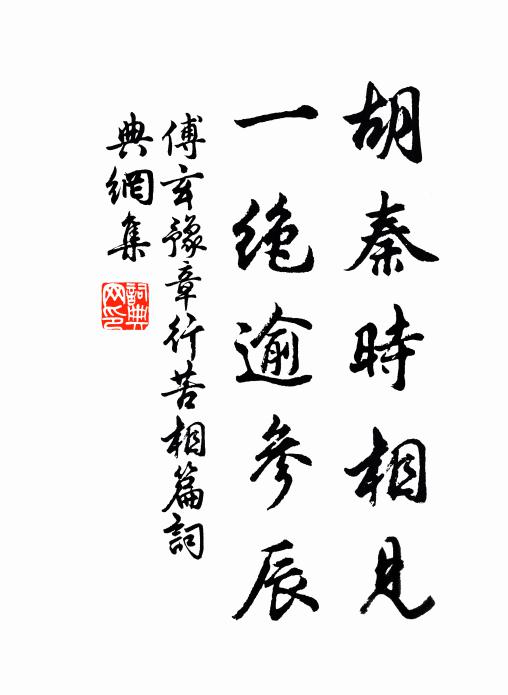 胡秦時相見
一絶逾參辰
傅玄豫章行苦相篇詞
典網集
詞典網印